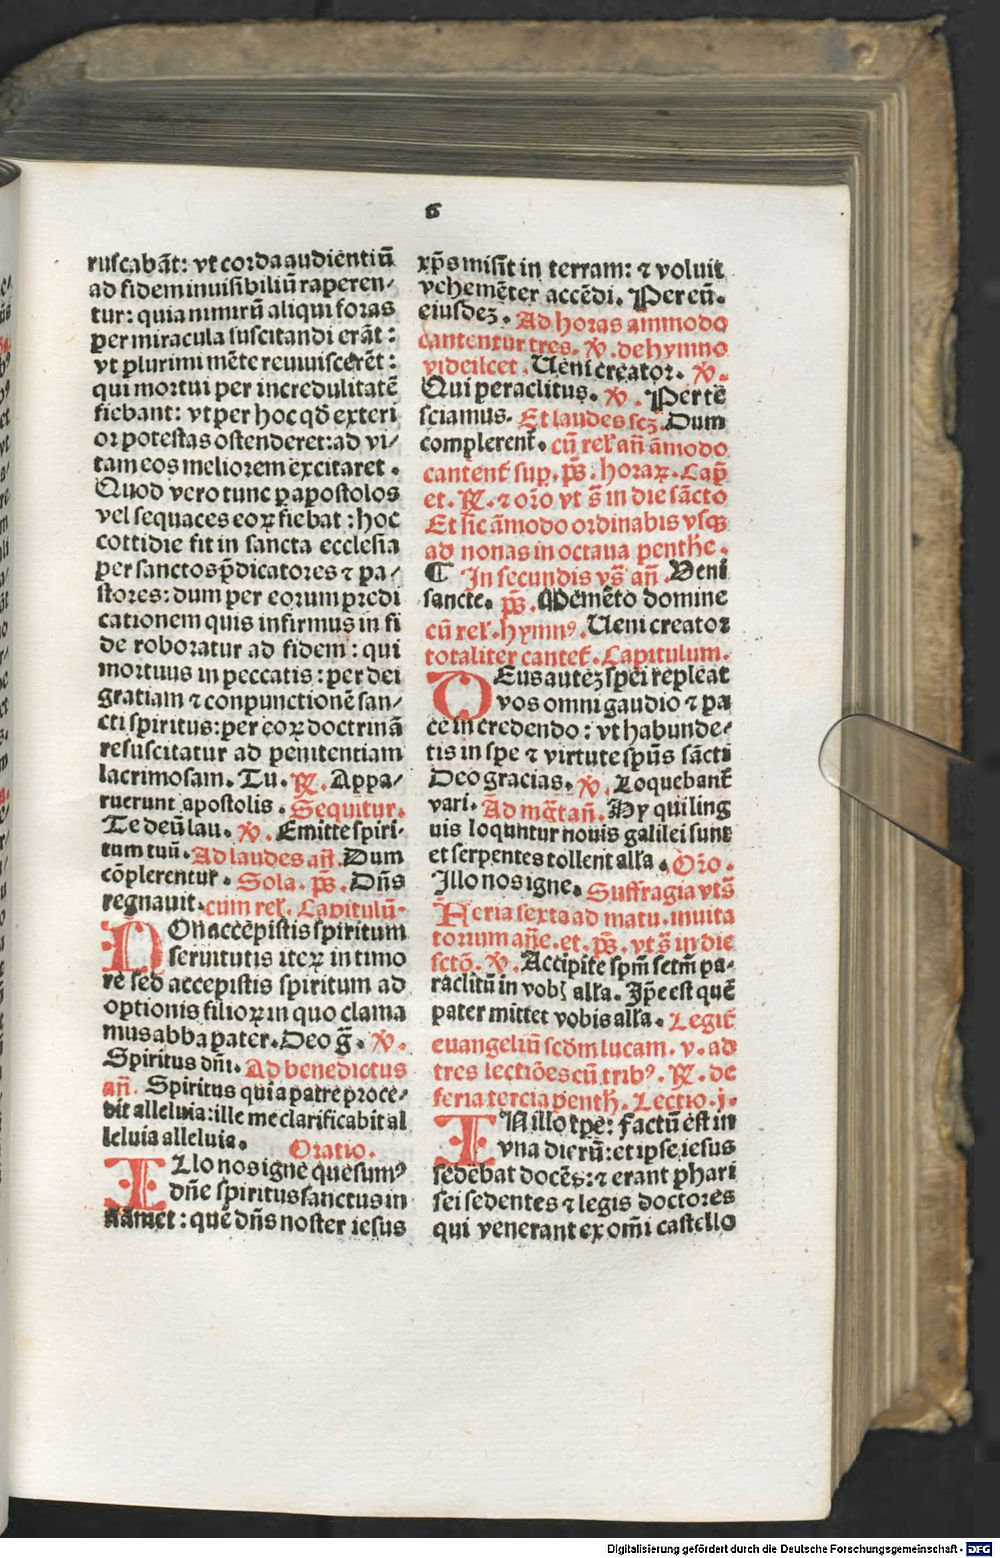 6
ruscabāt: vt corda audientiū
ad fidem inuisibiliū raperen⸗
tur: quia nimirū aliqui foras
per miracula suscitandi erāt:
vt plurimi mēte reuiuiscerēt:
qui mortui per incredulitatē
fiebant: vt per hoc qď exteri
or potestas ostenderet: ad vi⸗
tam eos meliorem excitaret.
Quod vero tunc ꝑ apostolos
vel sequaces eoꝝ fiebat: hoc
cottidie fit in sancta ecclesia
per sanctos p̄dicatores ⁊ pa⸗
stores: dum per eorum predi
cationem quis infirmus in fi
de roboratur ad fidem: qui
mortuus in peccatis: per dei
gratiam ⁊ conpunctionē san⸗
cti spiritus: per eoꝝ doctrinā
resuscitatur ad penitentiam
lacrimosam. Tu. ℞. Appa⸗
ruerunt apostolis. Sequitur.
Te deū lau. ℣. Emitte spiri⸗
tum tuū. Ad laudes añ. Dum
cōplerentur. Sola. p̄s. Dn̄s
regnauit. cum rel. Capitulū.
NOn accēpistis spiritum
seruitutis iteꝝ in timo
re sed accepistis spiritum ad
optionis filioꝝ in quo clama
mus abba pater. Deo g̃. ℣.
Spiritus dn̄i. Ad benedictus
añ. Spiritus qui a patre proce⸗
dit alleluia: ille me clarificabit al
leluia alleluia. Oratio.
ILlo nos igne quesumꝰ
dn̄e spiritus sanctus in
flāmet: quē dn̄s noster iesus
xp̄s misit in terram: ⁊ voluit
vehemēter accēdi. Per eū.
eiusdeꝫ. Ad horas ammodo
cantentur tres. ℣. de hymno
videilcet. Ueni creator. ℣.
Qui peraclitus. ℣. Per te
sciamus. Et laudes scꝫ. Dum
complerent᷑. cū rel᷑ añ āmodo
cantent᷑ sup. p̄s. horaꝝ. Cap̄
et. ℞. ⁊ or̄o vt s̄ in die sācto
Et sic āmodo ordinabis vsqꝫ
ad nonas in octaua penthe.
¶ In secundis vs̄ añ. Veni
sancte. p̄s. Memēto domine
cū rel᷑. hymnꝰ. Ueni creator
totaliter cantet᷑. Capitulum.
DEus auteꝫ spei repleat
vos omni gaudio ⁊ pa
ce in credendo: vt habunde⸗
tis in spe ⁊ virtute spūs sācti
Deo gracias. ℣. Loquebant᷑
vari. Ad mg̃t añ. Hy qui ling
uis loquntur nouis galilei sunt
et serpentes tollent alľa. Or̄o.
Illo nos igne. Suffragia vts̄
Feria sexta ad matu. inuita
torium an̄e. et. p̄s. vt s̄ in die
sctō. ℣. Accipite spm̄ sctm̄ pa⸗
raclitū in vobꝭ alľa. Ip̄e est quē
pater mittet vobis alľa. Legit᷑
euangeliū scďm lucam. v. ad
tres lectiōes cū tribꝰ. ℞. de
feria tercia penth. Lectio. j.
IN illo tp̄e: factū est in
vna dierū: et ipse iesus
sedebat docēs: ⁊ erant phari
sei sedentes ⁊ legis doctores
qui venerant ex om̄i castello
Digitalisierung gefördert durch die Deutsche Forschungsgemeinschaft - DFG